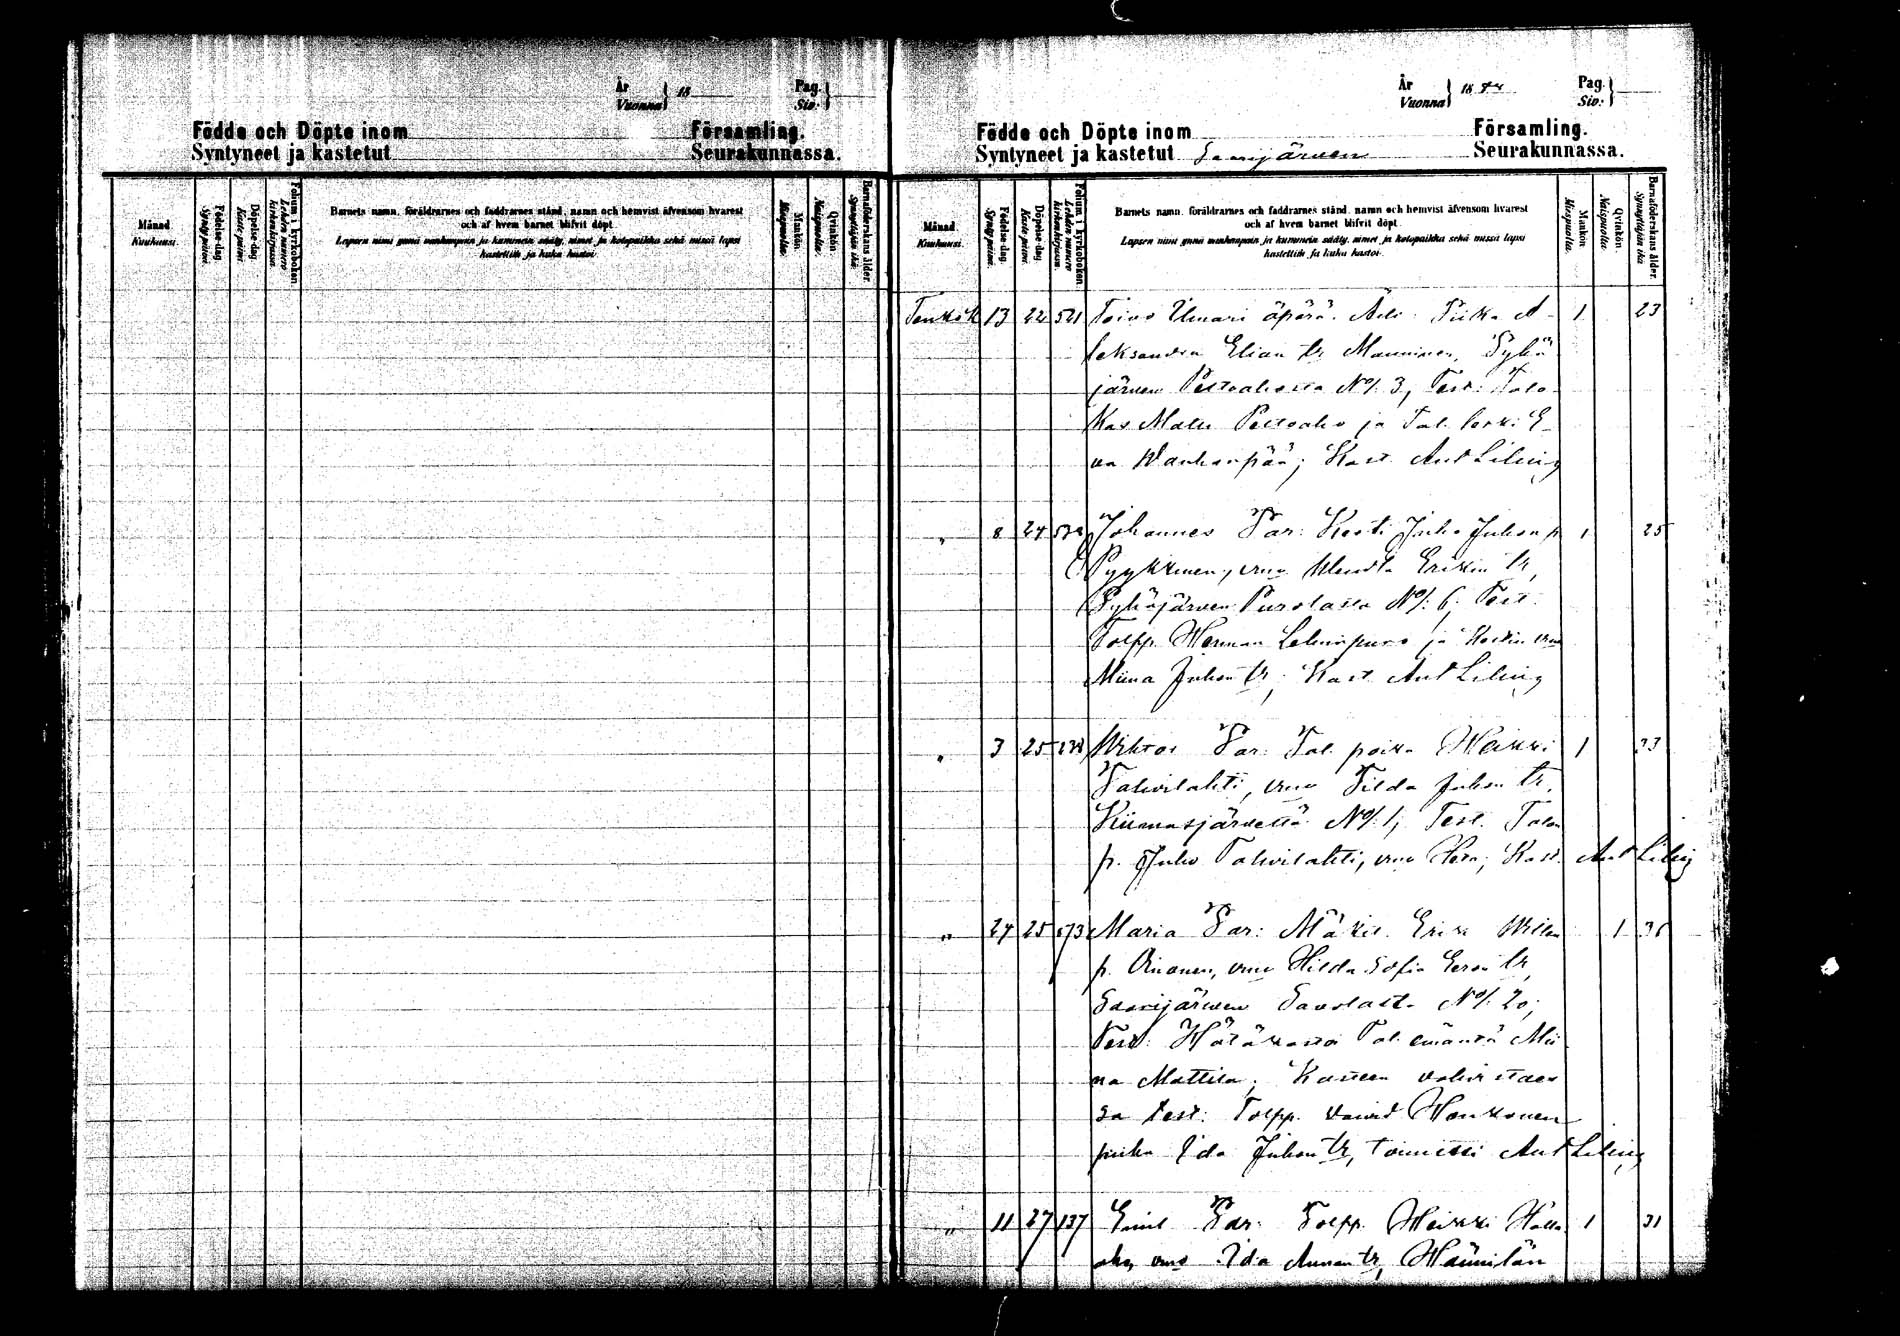 År
Vuonna } 18
Pag.
Siv: }
Födde och Döpte inom Församling.
Syntyneet ja kastetut Seurakunnassa.
Månad
Kuukausi.
Födelse-dag.
Syntypäivä.
Döpelse-dag
Kaste-päivä.
Folium i kyrkoboken
Lehden numero
kirkonkirjassa.
Barnets namn, föräldrarnes och faddrarnes stånd, namn och hemvist äfvensom hvarest
och af hvem barnet blifvit döpt.
Lapsen nimi ynnä vanhempain ja kummein sääty, nimet ja kotopaikka sekä missä lapsi
kastettiin ja kuka kastoi.
Mankön.
Miespuolta.
Qvinkön.
Naispuolta.
Barnaföderskans ålder.
Synnyttäjän ikä
År
Vuonna } 18
Pag.
Siv: }
Födde och Döpte inom Församling.
Syntyneet ja kastetut Saarijärven Seurakunnassa.
Månad
Kuukausi.
Födelse-dag.
Syntypäivä.
Döpelse-dag
Kaste-päivä.
Folium i kyrkoboken
Lehden numero
kirkonkirjassa.
Barnets namn, föräldrarnes och faddrarnes stånd, namn och hemvist äfvensom hvarest
och af hvem barnet blifvit döpt.
Lapsen nimi ynnä vanhempain ja kummein sääty, nimet ja kotopaikka sekä missä lapsi
kastettiin ja kuka kastoi.
Mankön.
Miespuolta.
Qvinkön.
Naispuolta.
Barnaföderskans ålder.
Synnyttäjän ikä
Toukok 13 22 521 Toivo Ilmari äpärä. Äiti: Piika A- 1 23
leksandra Elian tr Manninen, Pyhä-
järven Peltoaholta No/: 3, Test: Talo-
kas Matti Peltoaho ja Tal. leski E-
va Wanhanpää; Kast. Ant Liling
" 8 24 Johannes Var: Kesti Juho Juhon p. 1 25
Pyykkinen, vmo Wendla Erikin tr,
Pyhäjärven Purolasta No/: 6; Test.
Torpp. Herman Lehmäpuro ja vmo
Miina Juhon tr; Kast. Ant Liling
" 3 25 Wihtor Var: Tal. poika Heikki 1 33
Talvilahti, vmo Tilda Juhon tr,
Kiimasjärveltä No/: 1; Test. Talon
p. Juho Talvilahti, vmo Hera; Kast. Ant Liling
" 24 25 Maria Var: Mäkit. Erik Willen 1
p. Oinonen, vmo Hilda Sofia tr,
Saarijärven Savolasta No/: 20;
Test: Hätäkasta Tal. emäntä Mii-
na Mattila; Kasteen vahvistaes-
sa test: Torpp. Honkonen
piika Ida Juhon tr, toimitti Ant Liling
" 11 27 137 Emil Var: Torpp. Heikki 1 31
aho, vmo Ida Annan tr, Hännilän